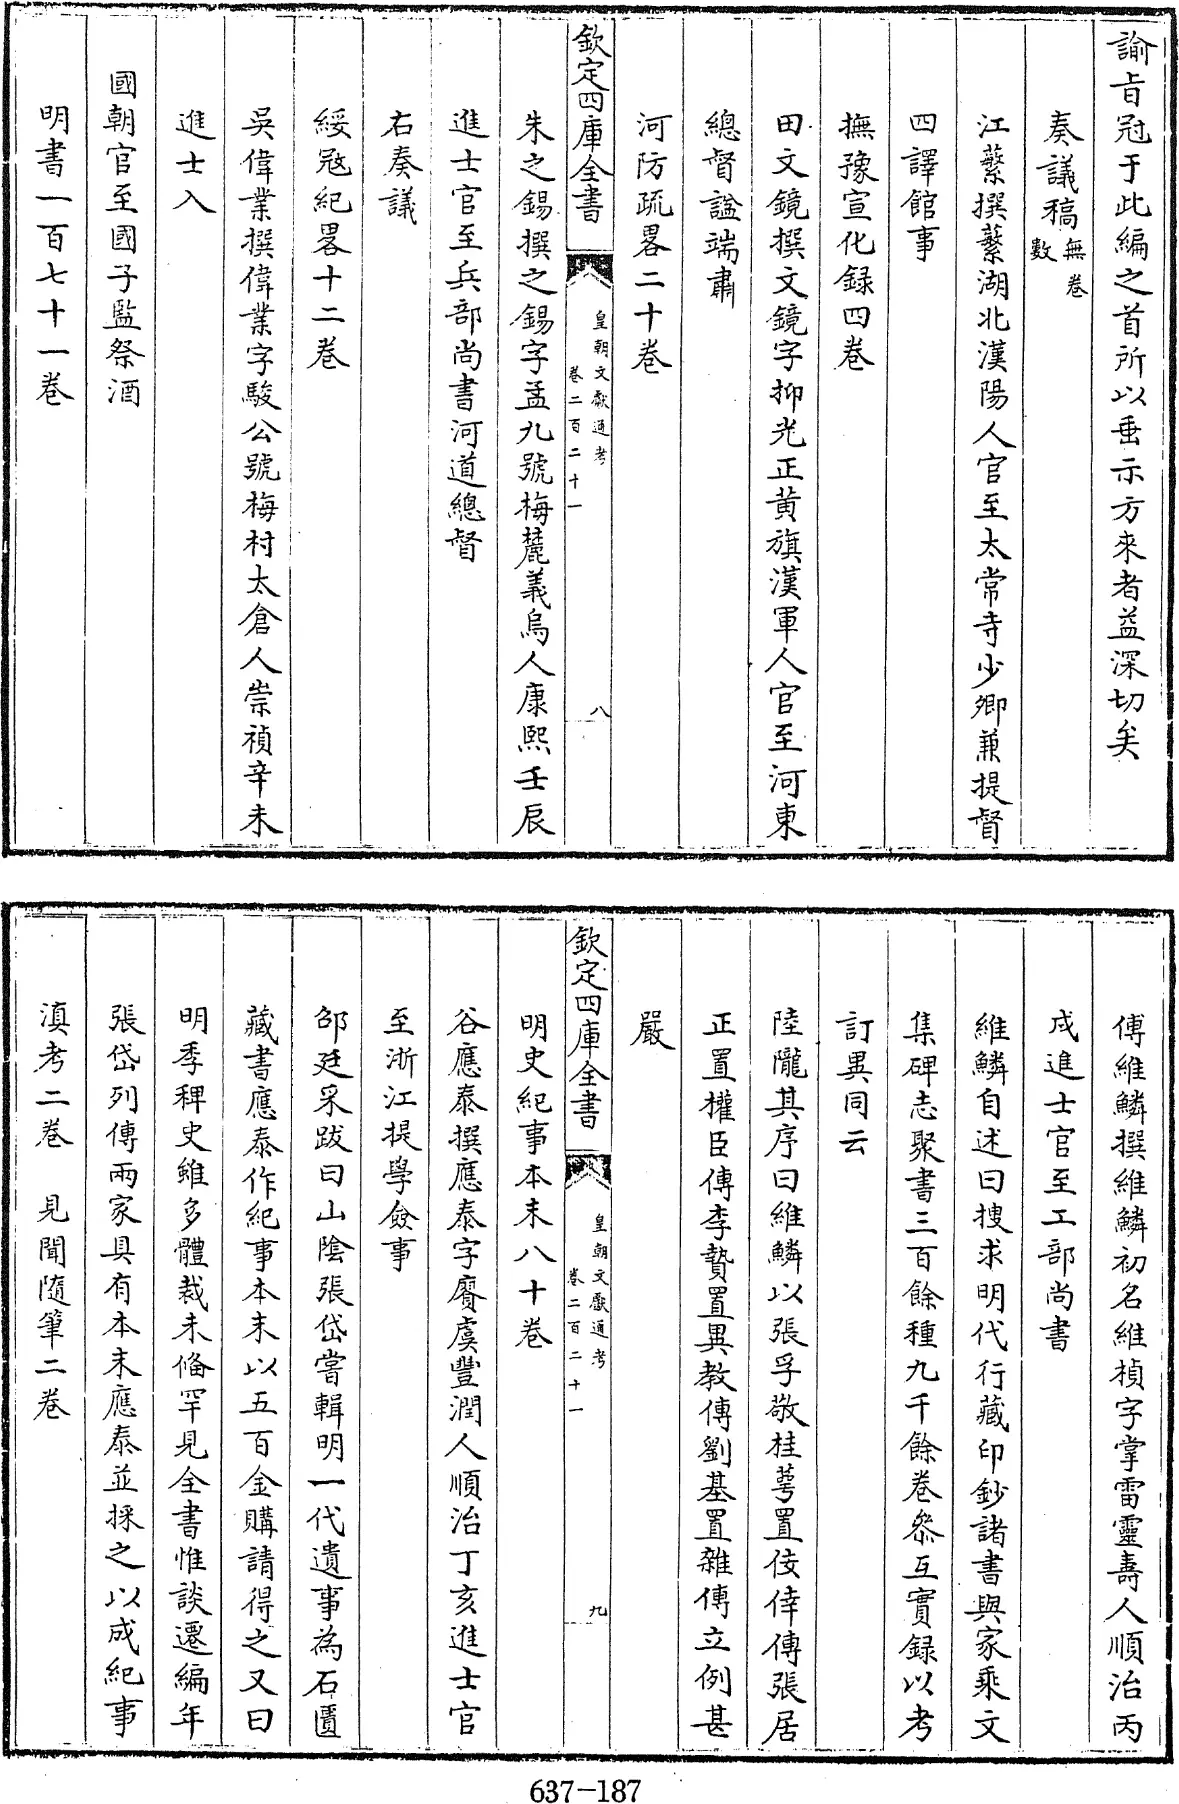 諭旨冠于此編之首所以垂示方來者益深切矣
奏議稿無卷數
江蘩撰蘩湖北漢陽人官至太常寺少卿兼提督
四譯館事
撫豫宣化録四卷
田文鏡撰文鏡字抑光正黄旗漢軍人官至河東
總督諡端肅
河防疏畧二十卷
欽定四庫全書
皇朝文獻通考
卷二百二十一
八
朱之錫撰之錫字孟九號梅麓義烏人康熙壬辰
進士官至兵部尚書河道總督
右奏議
綏冦紀畧十二卷
吳偉業撰偉業字駿公號梅村太倉人崇禎辛未
進士入
國朝官至國子監祭酒
明書一百七十一卷
傅維鱗撰維鱗初名維楨字掌雷靈壽人順治丙
戌進士官至工部尚書
維鱗自述曰搜求明代行藏印鈔諸書與家乘文
集碑志聚書三百餘種九千餘卷叅互實録以考
訂異同云
陸隴其序曰維鱗以張孚敬桂萼置佞倖傳張居
正置權臣傳李贄置異教傳劉基置雜傳立例甚
嚴
明史紀事本末八十卷
欽定四庫全書
皇朝文獻通考
卷二百二十一
九
谷應泰撰應泰字賡虞豐潤人順治丁亥進士官
至浙江提學僉事
邵廷采跋曰山陰張岱嘗輯明一代遺事為石匱
藏書應泰作紀事本末以五百金購請得之又曰
明季稗史雖多體裁未備罕見全書惟談遷編年
張岱列傳兩家具有本末應泰並採之以成紀事
滇考二卷　見聞隨筆二卷
637-187